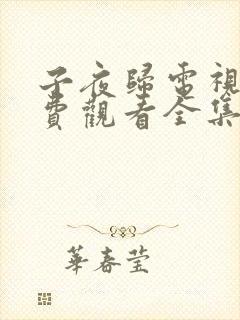 子夜歸電視
費觀看全集
華春瑩